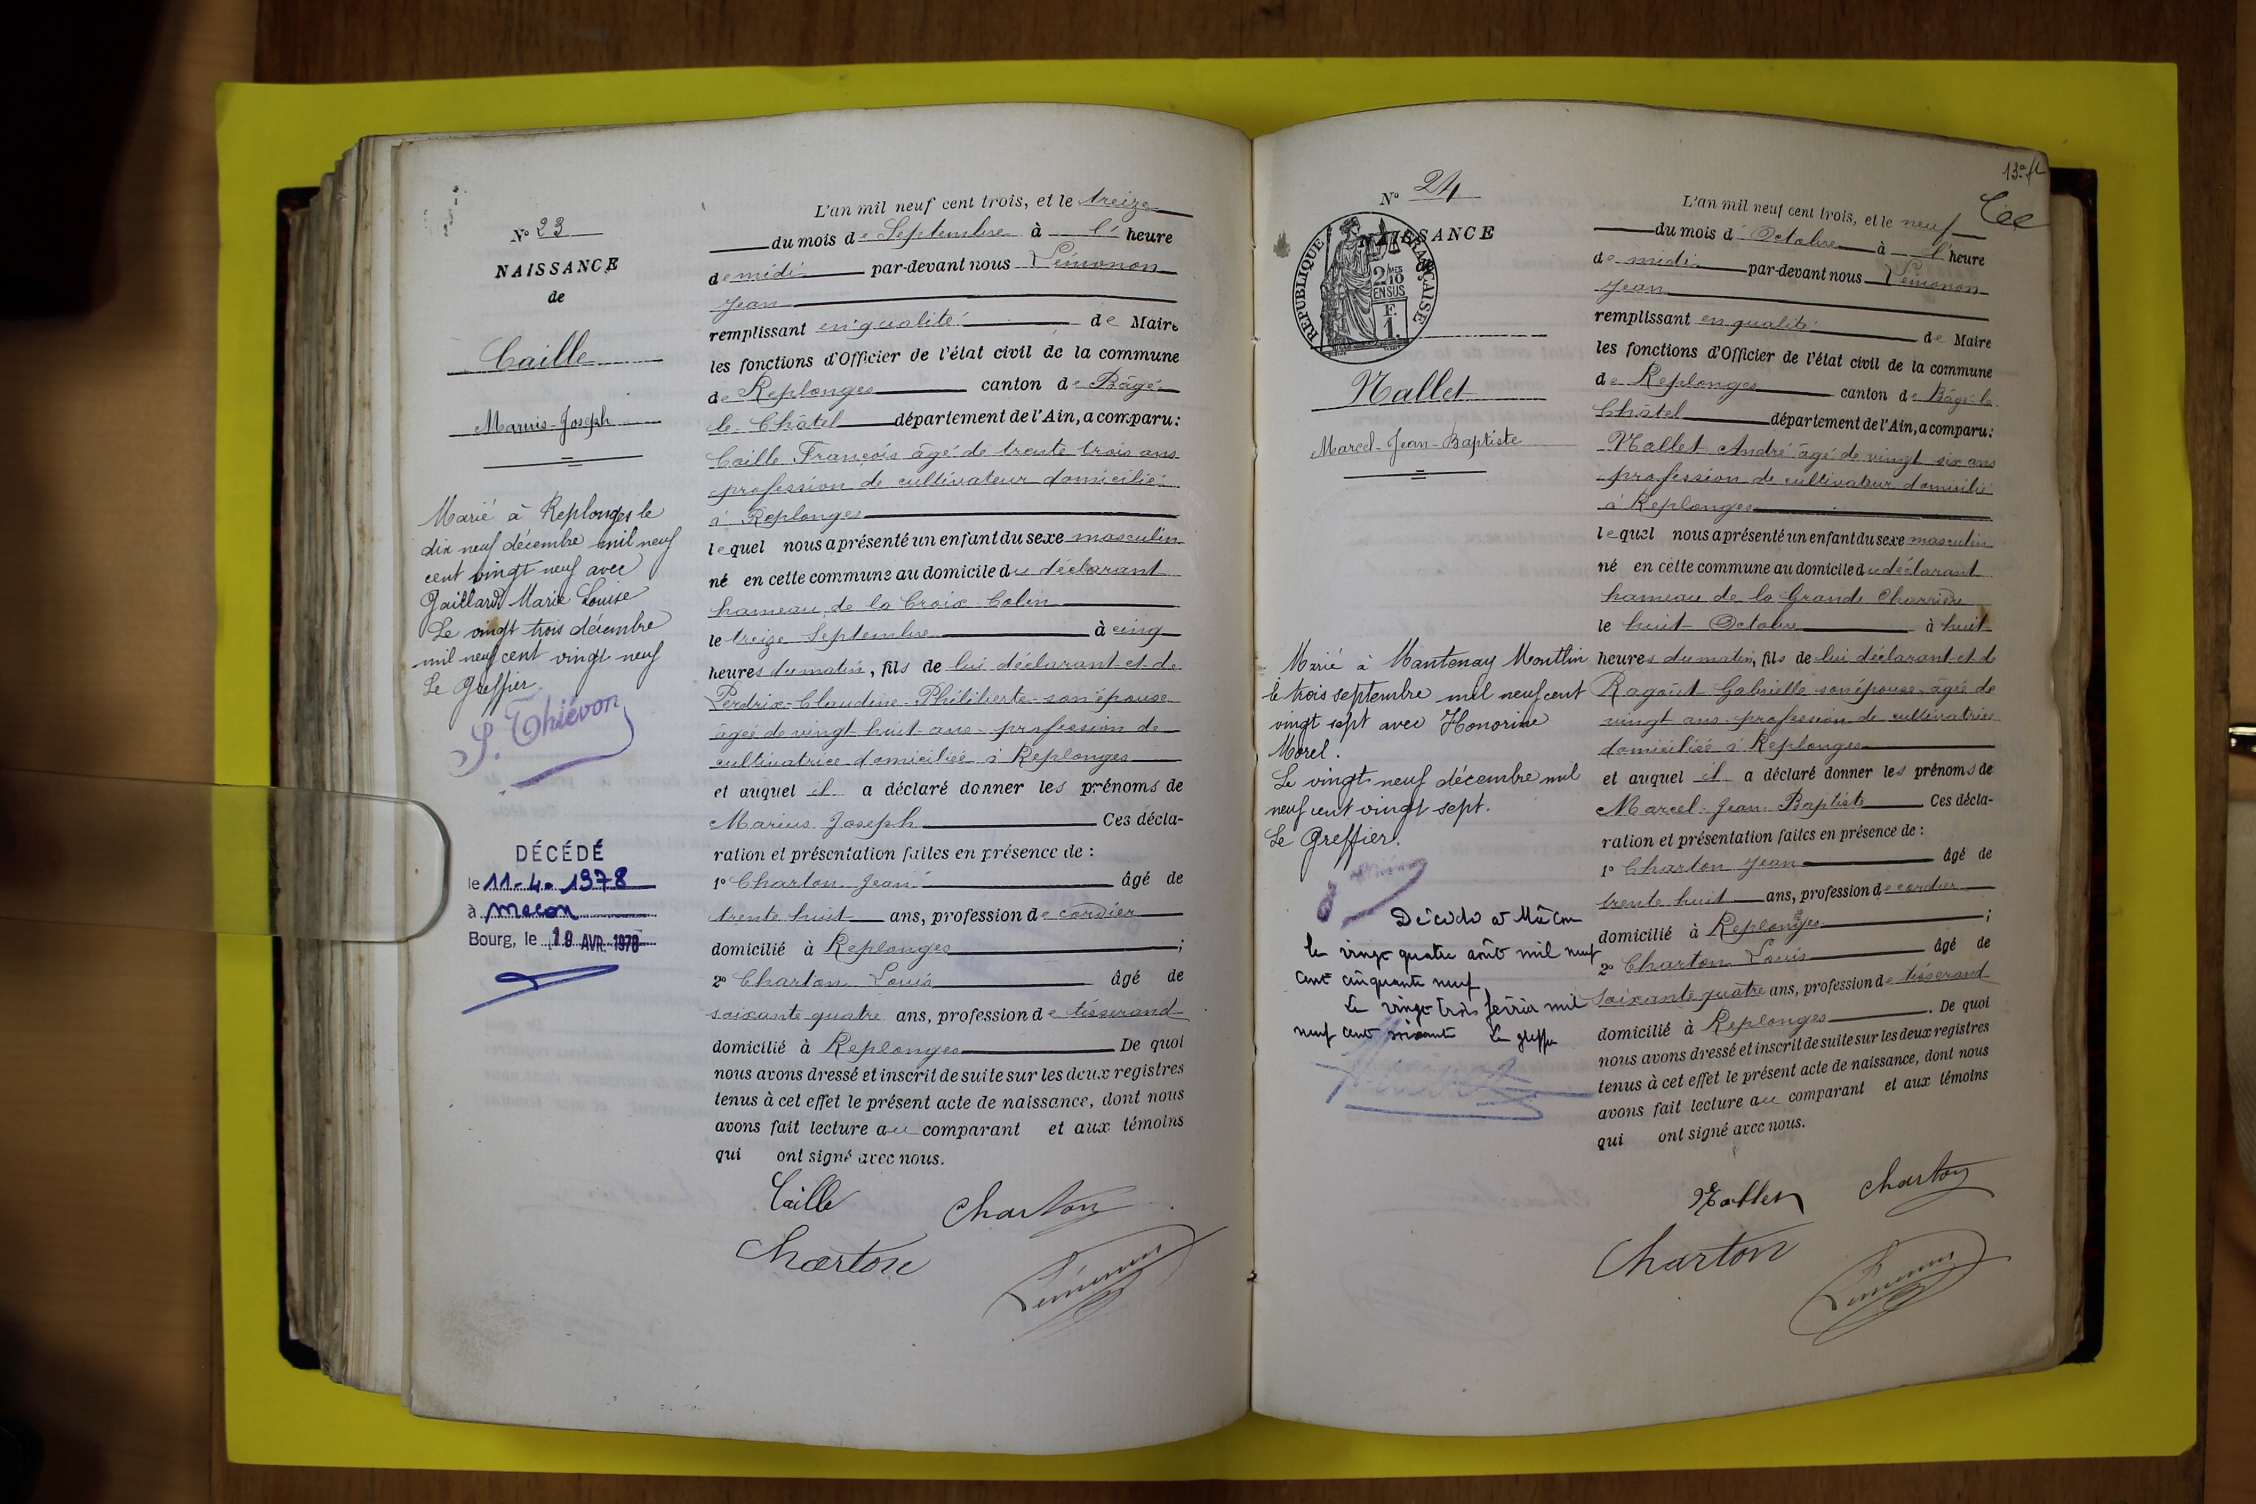 N° 23
NAISSANCE
de
Caille
Marius-Joseph
Marié à Replonges le
dix neuf décembre mil neuf
cent vingt neuf avec
Gaillard Marie Louise
Le vingt trois décembre
mil neuf cent vingt neuf
Le Greffier
S. Thiévon
DÉCÉDÉ
le 11-4-1978
à macon
Bourg, le 19 AVR. 1978
L'an mil neuf cent trois, et le treize
du mois de Septembre à l' heure
de midi par-devant nous Lémonon
Jean
remplissant en qualité de Maire
les fonctions d'Officier de l'état civil de la commune
de Replonges canton de Bâgé
le Châtel département de l'Ain, a comparu:
Caille François âgé de trente trois ans
profession de cultivateur domicilié
à Replonges
lequel nous a présenté un enfant du sexe masculin
né en cette commune au domicile du déclarant
hameau de la Croix Colin
le treize Septembre à cinq
heures du matin, fils de lui déclarant et de
Perdrix Claudine Philiberte son épouse
âgée de vingt huit ans profession de
cultivatrice domiciliée à Replonges
et auquel il a déclaré donner les prénoms de
Marius Joseph Ces décla-
ration et présentation faites en présence de :
1° Charton Jean âgé de
trente huit ans, profession de cordier
domicilié à Replonges ;
2° Charton Louis âgé de
soixante quatre ans, profession de tisserand
domicilié à Replonges De quoi
nous avons dressé et inscrit de suite sur les deux registres
tenus à cet effet le présent acte de naissance, dont nous
avons fait lecture au comparant et aux témoins
qui ont signé avec nous.
Caille Charton
Charton Lémonon
13e f.
N° 24
NAISSANCE
RÉPUBLIQUE FRANÇAISE
2/10 MES
EN SUS
F.
1.
Nallet
Marcel-Jean-Baptiste
Marié à Mantenay Montlin
le trois septembre mil neuf cent
vingt sept avec Honorine
Morel.
Le vingt neuf décembre mil
neuf cent vingt sept.
Le Greffier.
Décédé à Mâcon
le vingt quatre août mil neuf
cent cinquante neuf
Le vingt trois février mil
neuf cent soixante Le greffier
L'an mil neuf cent trois, et le neuf
du mois d'Octobre à l' heure
de midi par-devant nous Lémonon
Jean
remplissant en qualité de Maire
les fonctions d'Officier de l'état civil de la commune
de Replonges canton de Bâgé le
Châtel département de l'Ain, a comparu:
Nallet André âgé de vingt six ans
profession de cultivateur domicilié
à Replonges
lequel nous a présenté un enfant du sexe masculin
né en cette commune au domicile du déclarant
hameau de la Grande Charrière
le huit Octobre à huit
heures du matin, fils de lui déclarant et de
Ragoût Gabrielle son épouse âgée de
vingt ans profession de cultivatrice
domiciliée à Replonges
et auquel il a déclaré donner les prénoms de
Marcel Jean Baptiste Ces décla-
ration et présentation faites en présence de :
1° Charton Jean âgé de
trente huit ans, profession de cordier
domicilié à Replonges ;
2° Charton Louis âgé de
soixante quatre ans, profession de tisserand
domicilié à Replonges. De quoi
nous avons dressé et inscrit de suite sur les deux registres
tenus à cet effet le présent acte de naissance, dont nous
avons fait lecture au comparant et aux témoins
qui ont signé avec nous.
Nallet Charton
Charton Lémonon